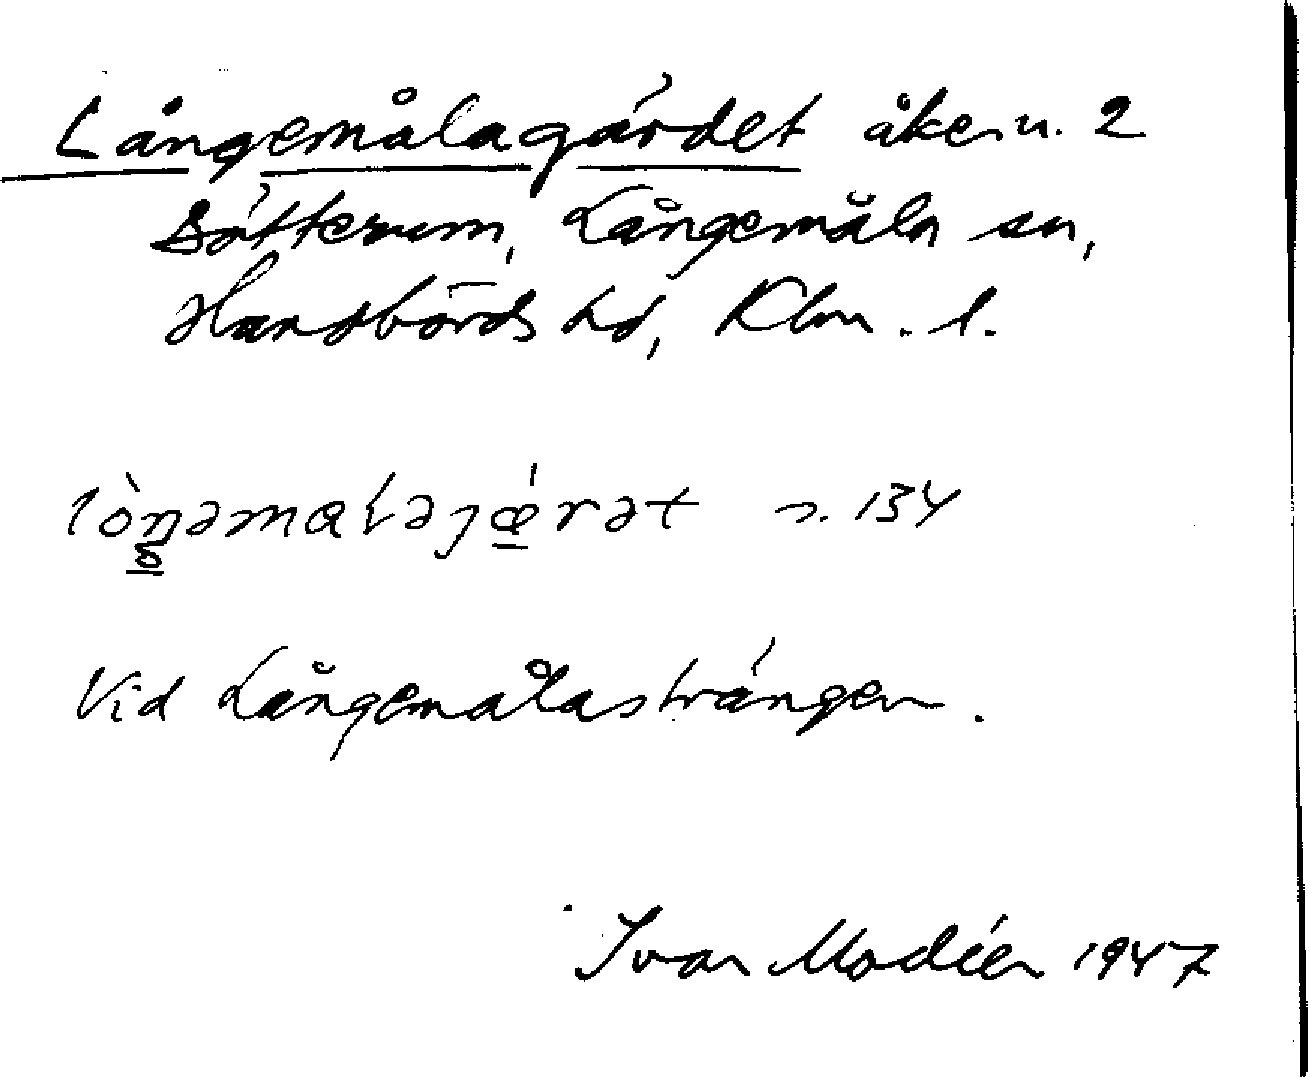 Långemålagärdet åker u. 2
Sötterum, Långemåla sn,
Handbörds hd, Klm. l.
lòŋəmɑlaȷǽrət s. 134
Vid Långemålasträngen.
Ivar Modéer 1947